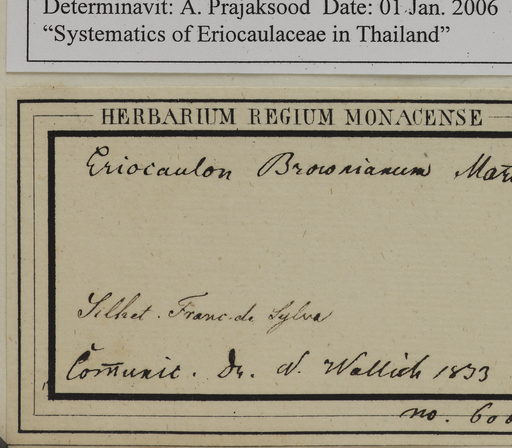 Determinavit: A. Prajaksood Date: 01 Jan. 2006
“Systematics of Eriocaulaceae in Thailand”
HERBARIUM REGIUM MONACENSE
Eriocaulon Brownianum Mart
Silhet. Franc. de Sylva
Com̄unic. Dr. N. Wallich 1833
no. 60